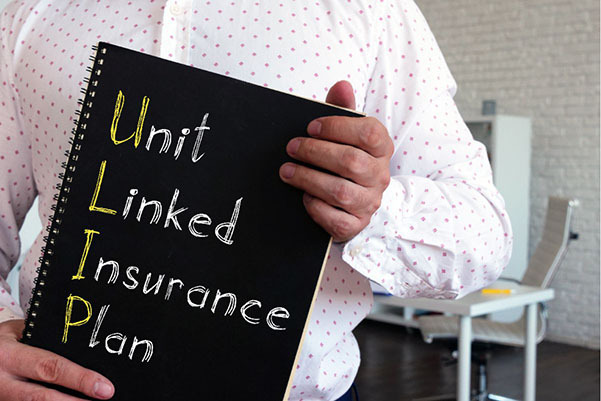 Unit
Linked
Insurance
Plan